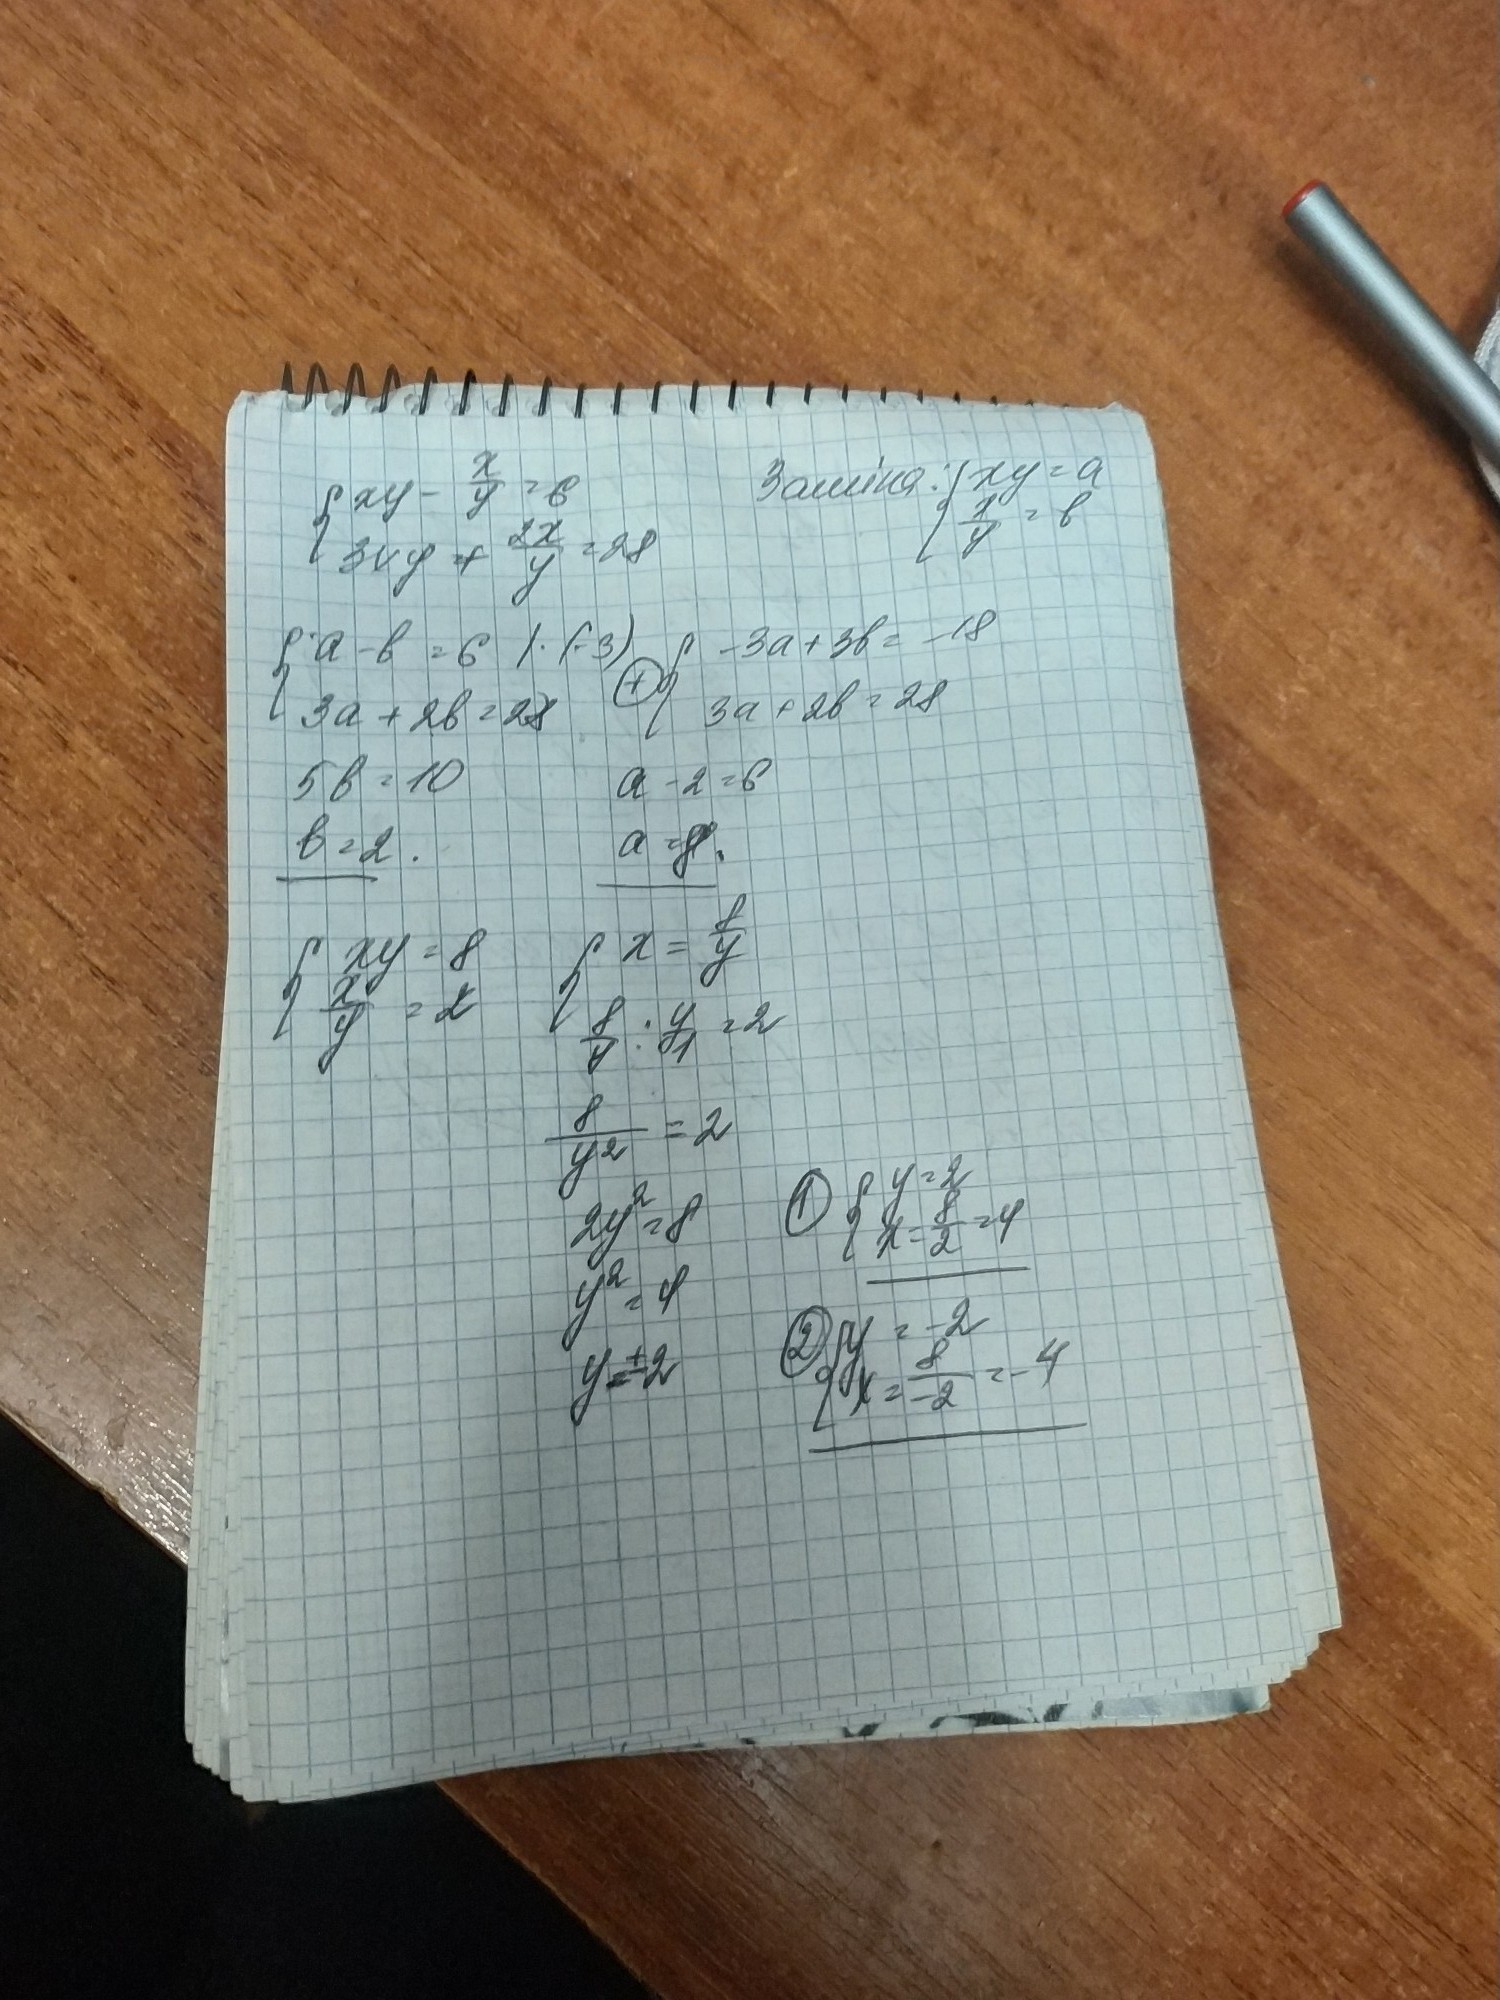 { xy - x/y = 6
3xy + 2x/y = 28
Заміна: { xy = a
x/y = b
{ a - b = 6 | · (-3)
3a + 2b = 28
(+) { -3a + 3b = -18
3a + 2b = 28
5b = 10
b = 2.
a - 2 = 6
a = 8.
{ xy = 8
x/y = 2
{ x = 8/y
8/y : y/1 = 2
8/y² = 2
2y² = 8
y² = 4
y = ±2
① { y = 2
x = 8/2 = 4
② { y = -2
x = 8/-2 = -4